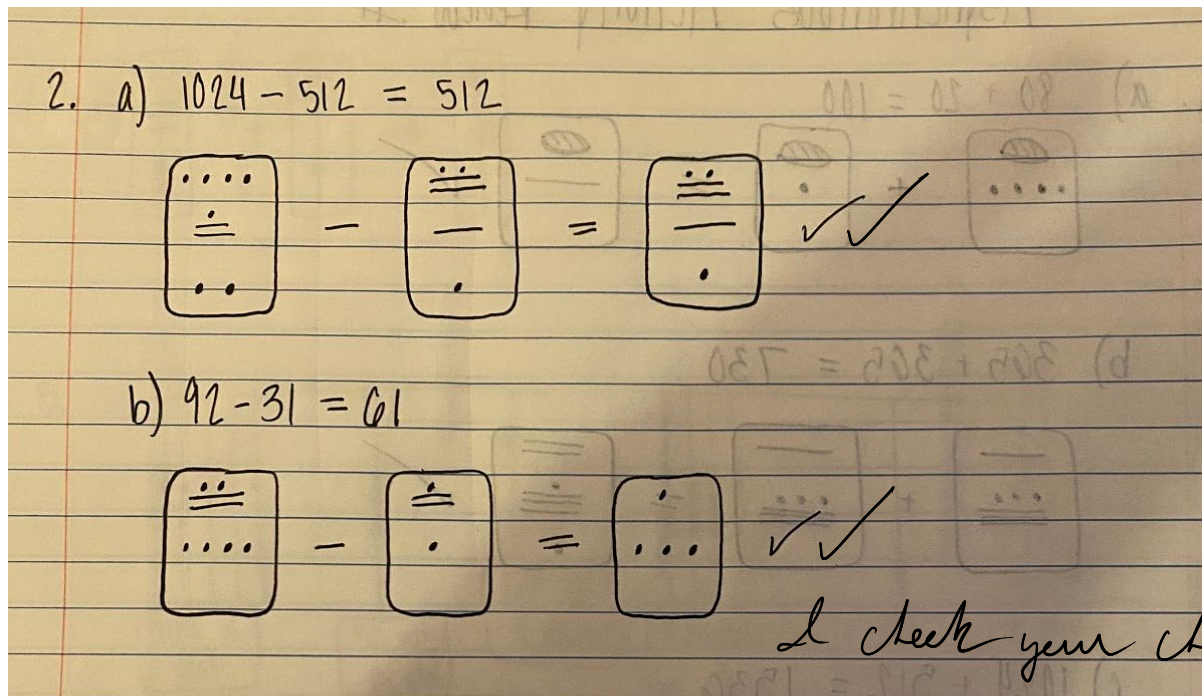 2. a) 1024 - 512 = 512
- = ✓✓
b) 92 - 31 = 61
- = ✓✓
I check your ch